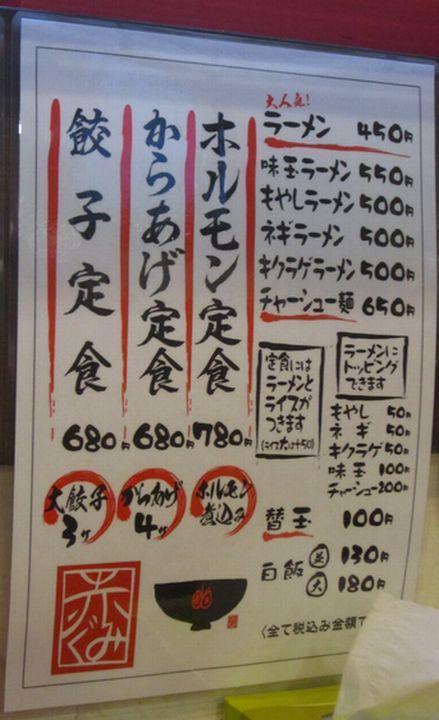 大人気!
ラーメン 450円
味玉ラーメン 550円
もやしラーメン 500円
ネギラーメン 500円
キクラゲラーメン 500円
チャーシュー麺 650円
ホルモン定食 780円
からあげ定食 680円
餃子定食 680円
定食には
ラーメンと
ライスが
つきます
(ライス大は+50)
ラーメンに
トッピング
できます
もやし 50円
ネギ 50円
キクラゲ 50円
味玉 100円
チャーシュー 200円
ホルモン
煮込み
からあげ
4ヶ
大餃子
3ヶ
替玉 100円
白飯 並 130円
大 180円
赤
ぐみ
〈全て税込み金額で